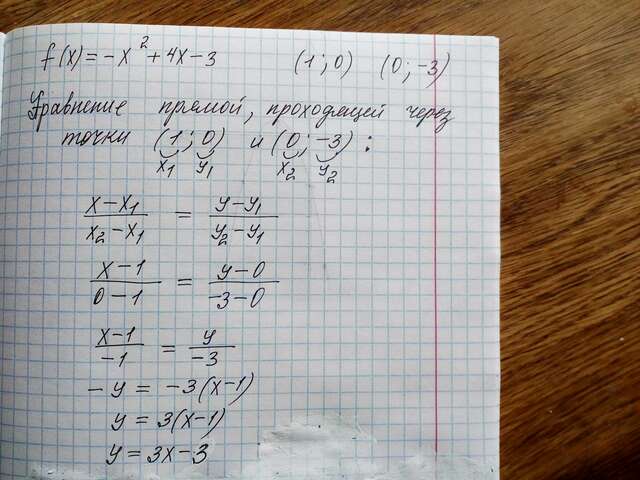 f(x) = -x² + 4x - 3 (1; 0) (0; -3)
Уравнение прямой, проходящей через
точки (1; 0) и (0; -3) :
x₁ y₁ x₂ y₂
x - x₁ / x₂ - x₁ = y - y₁ / y₂ - y₁
x - 1 / 0 - 1 = y - 0 / -3 - 0
x - 1 / -1 = y / -3
- y = -3(x - 1)
y = 3(x - 1)
y = 3x - 3